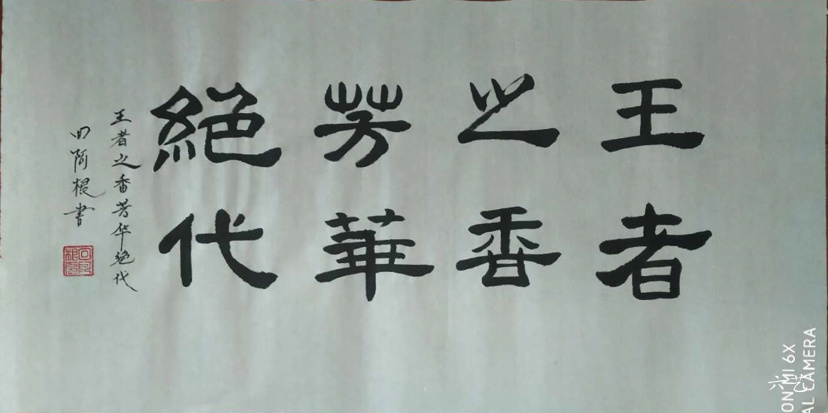 王者
之香
芳華
絕代
王者之香芳华绝代
田阿根書
ON MI 6X
AL CAMERA